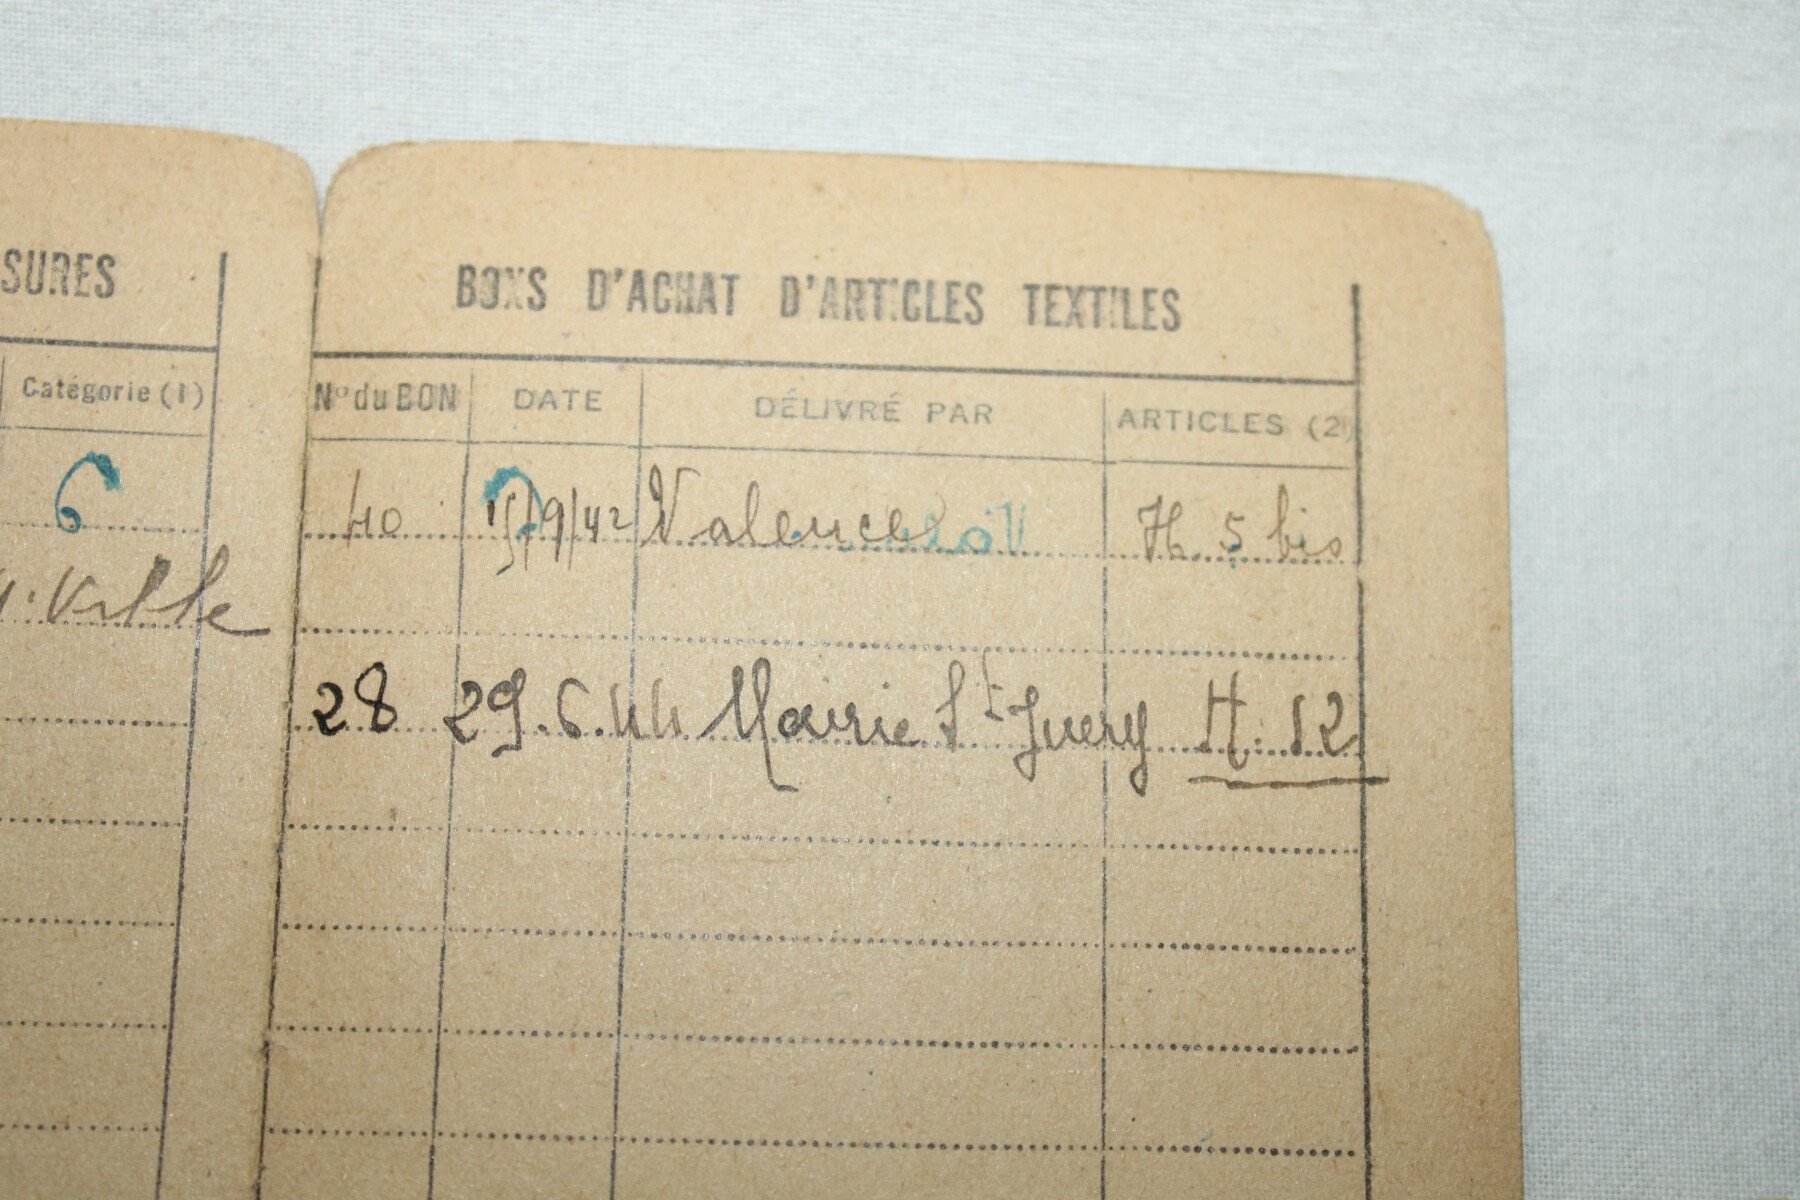 SURES
Catégorie (1)
6
BONS D'ACHAT D'ARTICLES TEXTILES
Nº du BON DATE DÉLIVRÉ PAR ARTICLES (2)
40 15/9/42 Valence H. 5 bis
28 29.6.44 Mairie St Juery H. 12